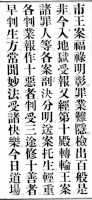 市王案福祿明彰罪業難隱檢出百般是
非今入地獄受報又經第十殿轉輪王案
諸罪人等各案訇決分明送案托生輕重
各判業報作十惡者判受三途修十善者
早判生方常聞妙法受諸快樂今日道場